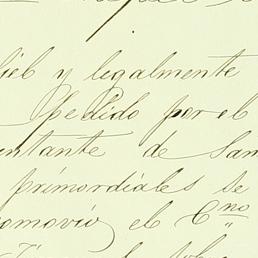 fiel y legalmente
Pedido por el
entante de San
primordiales se
omovió, el C^no